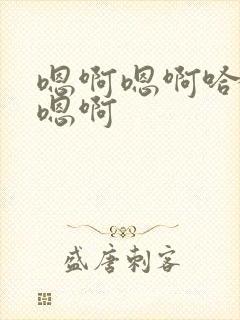 嗯啊嗯啊哈
嗯啊
盛唐刺客